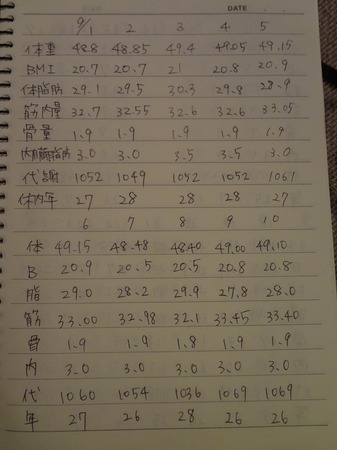 DATE
9/1 2 3 4 5
体重 48.8 48.85 49.4 49.05 49.15
BMI 20.7 20.7 21 20.8 20.9
体脂肪 29.1 29.5 30.3 29.8 28.9
筋肉量 32.7 32.55 32.6 32.6 33.05
骨量 1.9 1.9 1.9 1.9 1.9
内臓脂肪 3.0 3.0 3.5 3.5 3.0
代謝 1052 1049 1052 1052 1061
体内年 27 28 28 28 27
6 7 8 9 10
体 49.15 48.48 48.40 49.00 49.10
B 20.9 20.5 20.5 20.8 20.8
脂 29.0 28.2 29.9 27.8 28.0
筋 33.00 32.98 32.1 33.45 33.40
骨 1.9 1.9 1.8 1.9 1.9
内 3.0 3.0 3.0 3.0 3.0
代 1060 1054 1036 1069 1069
年 27 26 28 26 26